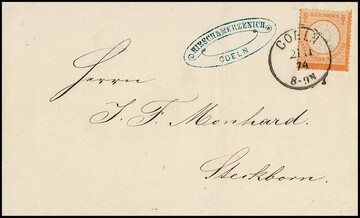 HIRSCH & MERZENICH
COELN
COELN
74
8-9N
Herrn
J. F. Monhard.
Steckborn.